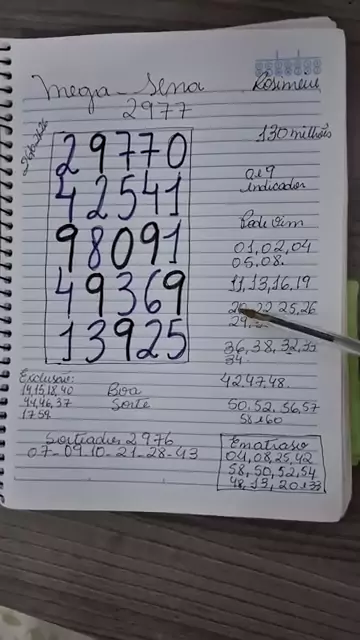 Mega-Sena
Rosimeire
2977
29770
42541
98091
49369
13925
130 milhões
0 e 9
indicador
Pode vim
01,02,04
05,08.
11,13,16,19
20,22,25,26
29,
36,38,32,33
34.
42,47,48.
50,52,56,57
58 e 60
Exclusão:
14,15,18,40
44,46,37
17 59
Boa
Sorte
Sorteadas 2976
07-09-10-21-28-43
Em atraso
04,08,25,42
58,50,52,54
48,13,20 e 33